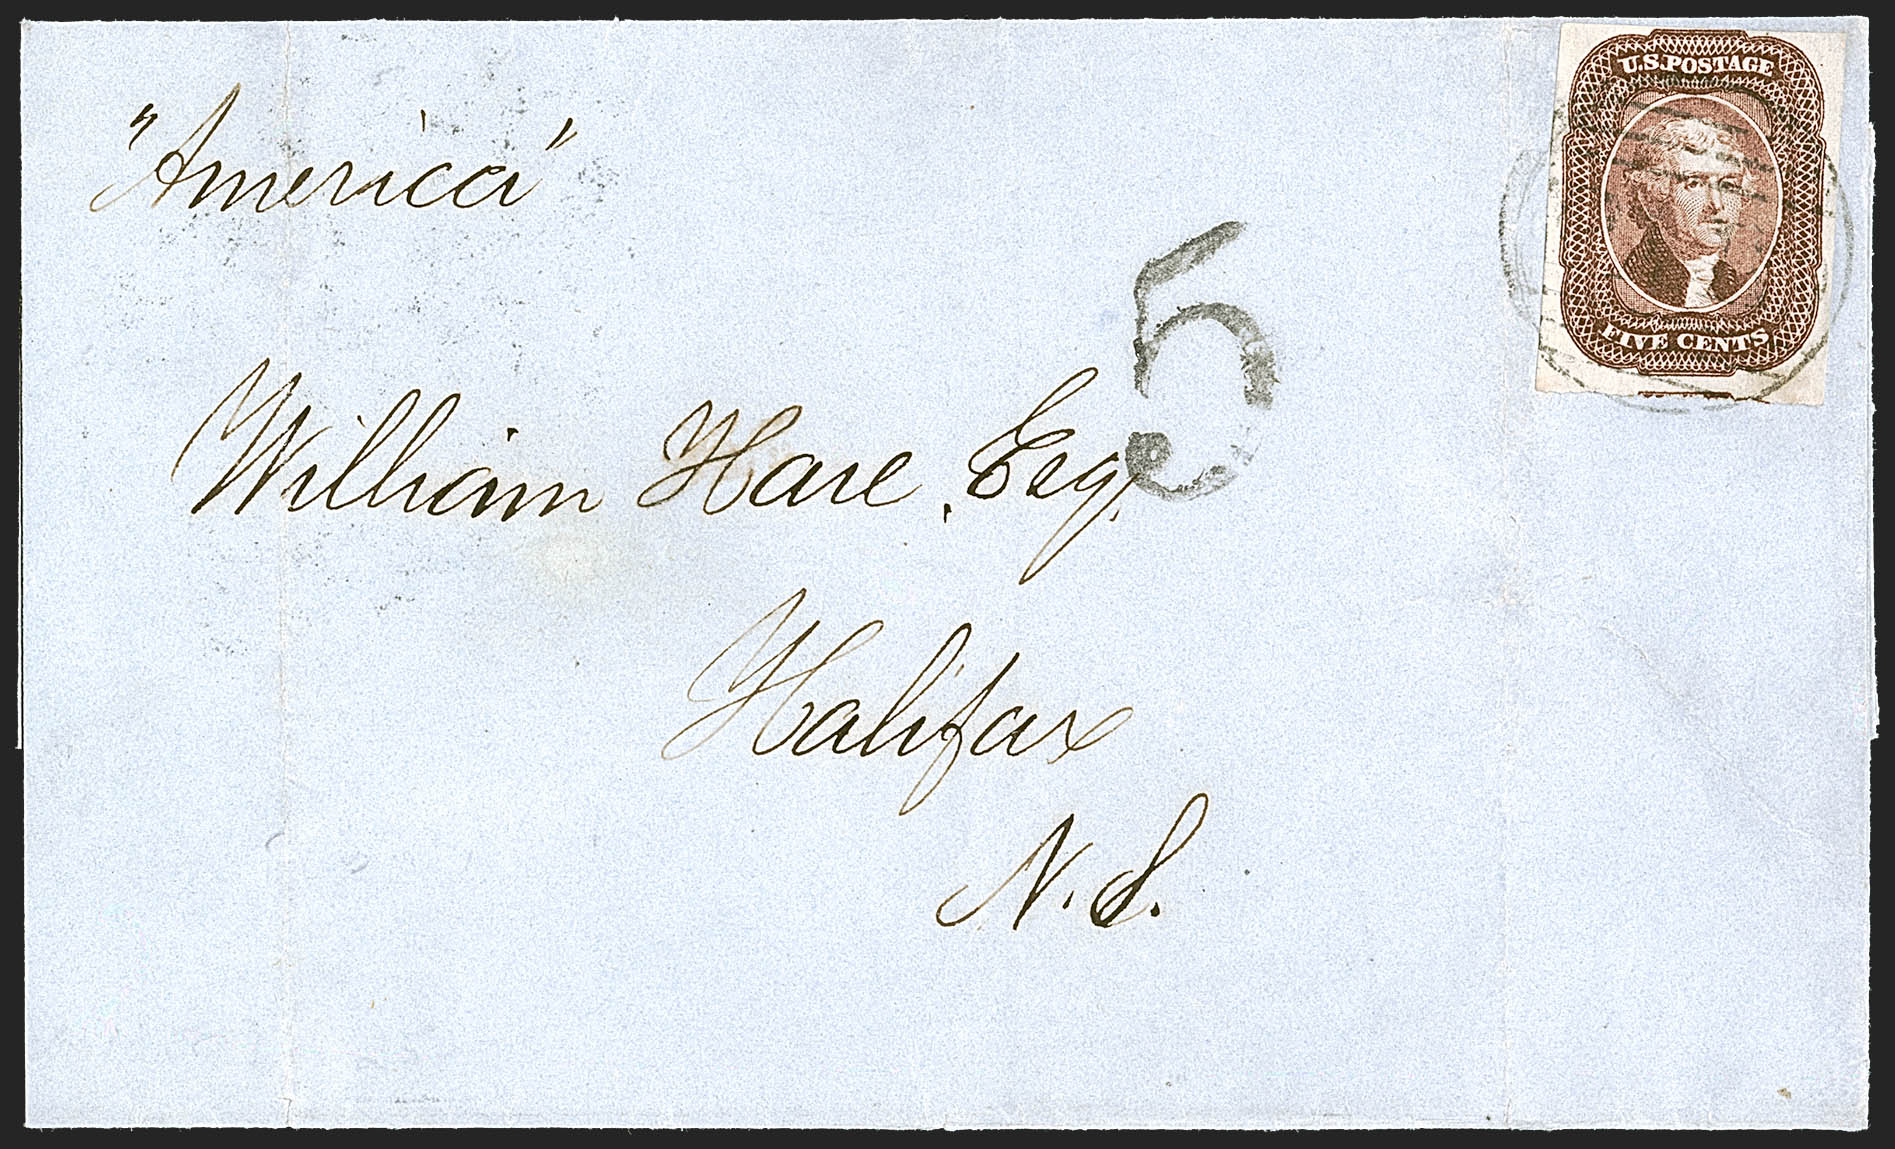 "America"
U.S. POSTAGE
FIVE CENTS
5
William Hare, Esq.
Halifax
N.S.